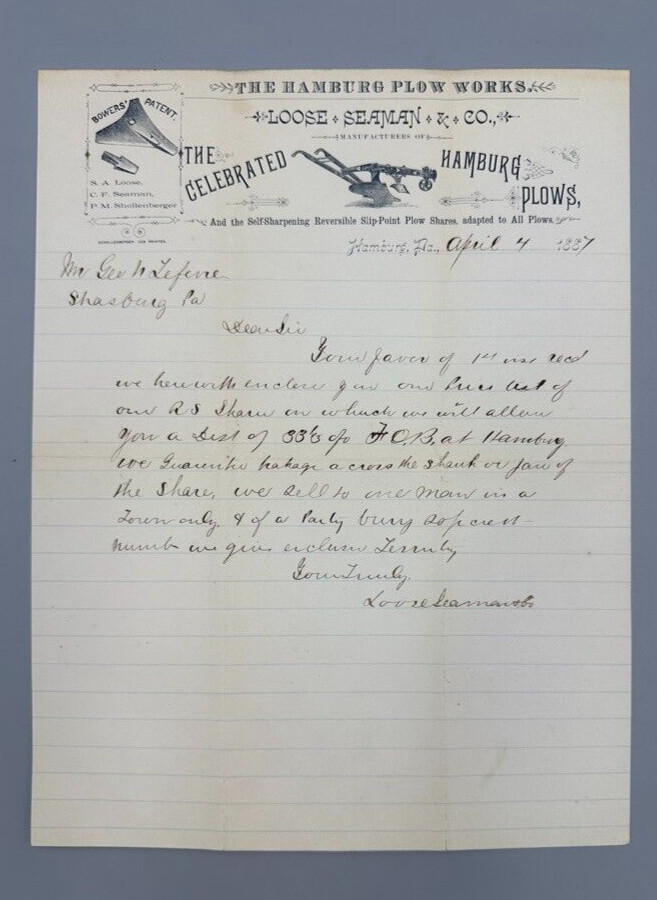 THE HAMBURG PLOW WORKS.
LOOSE SEAMAN & CO.,
MANUFACTURERS OF
THE CELEBRATED HAMBURG PLOWS,
And the Self-Sharpening Reversible Slip-Point Plow Shares, adapted to All Plows.
BOWERS' PATENT.
S. A. Loose,
C. F. Seaman,
P. M. Shollenberger
Hamburg, Pa., April 4 1887
Mr Geo N Lefevre
Strasburg Pa
Dear Sir
Your favor of 1st inst recd
we herewith enclose you our Price List of
our RS Share on which we will allow
you a Dist of 33 1/3 o/o F.O.B. at Hamburg
we Guarantee across the Shank or Jaw of
the Share, we sell to one man in a
Town only, & if a Party
we give exclusive Territory
Yours Truly,
Loose Seaman & Co